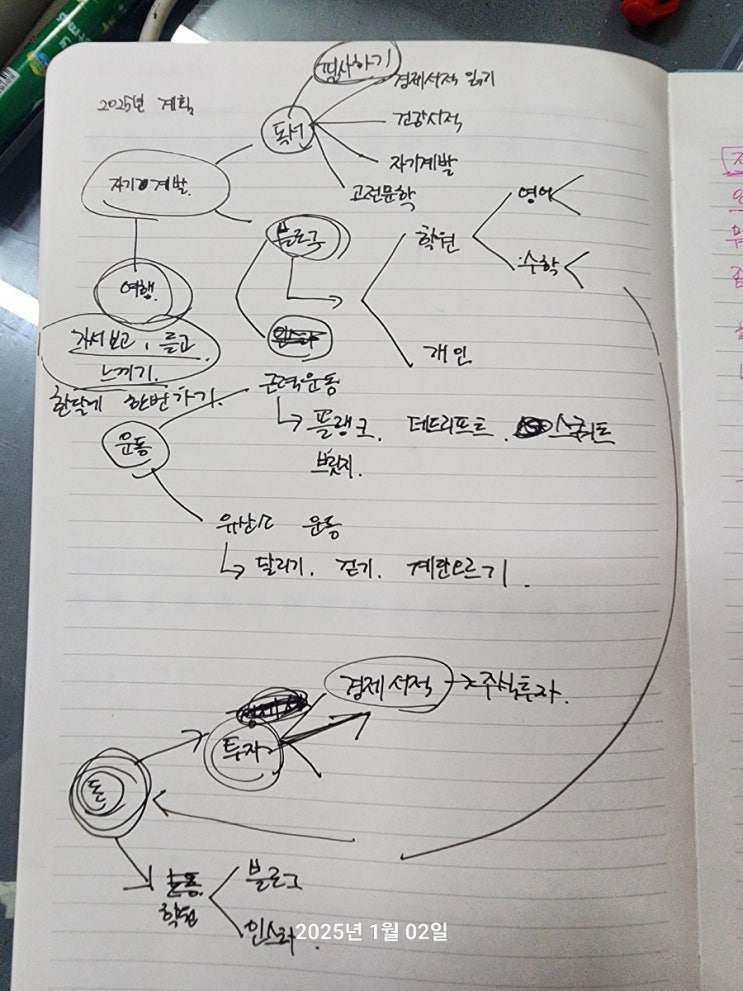 필사하기
경제서적 읽기
2025년 계획
건강서적
독서
자기계발
자기계발.
고전문학
영어
블로그
학원
수학
여행.
가서 보고, 듣고,
느끼기.
개인
한달에 한번 가기.
근력운동
운동
플랭크. 데드리프트. 스쿼트
브릿지.
유산소 운동
달리기. 걷기. 계단오르기.
경제서적 → 주식투자.
투자
돈
블로그
학원
인스타.
2025년 1월 02일